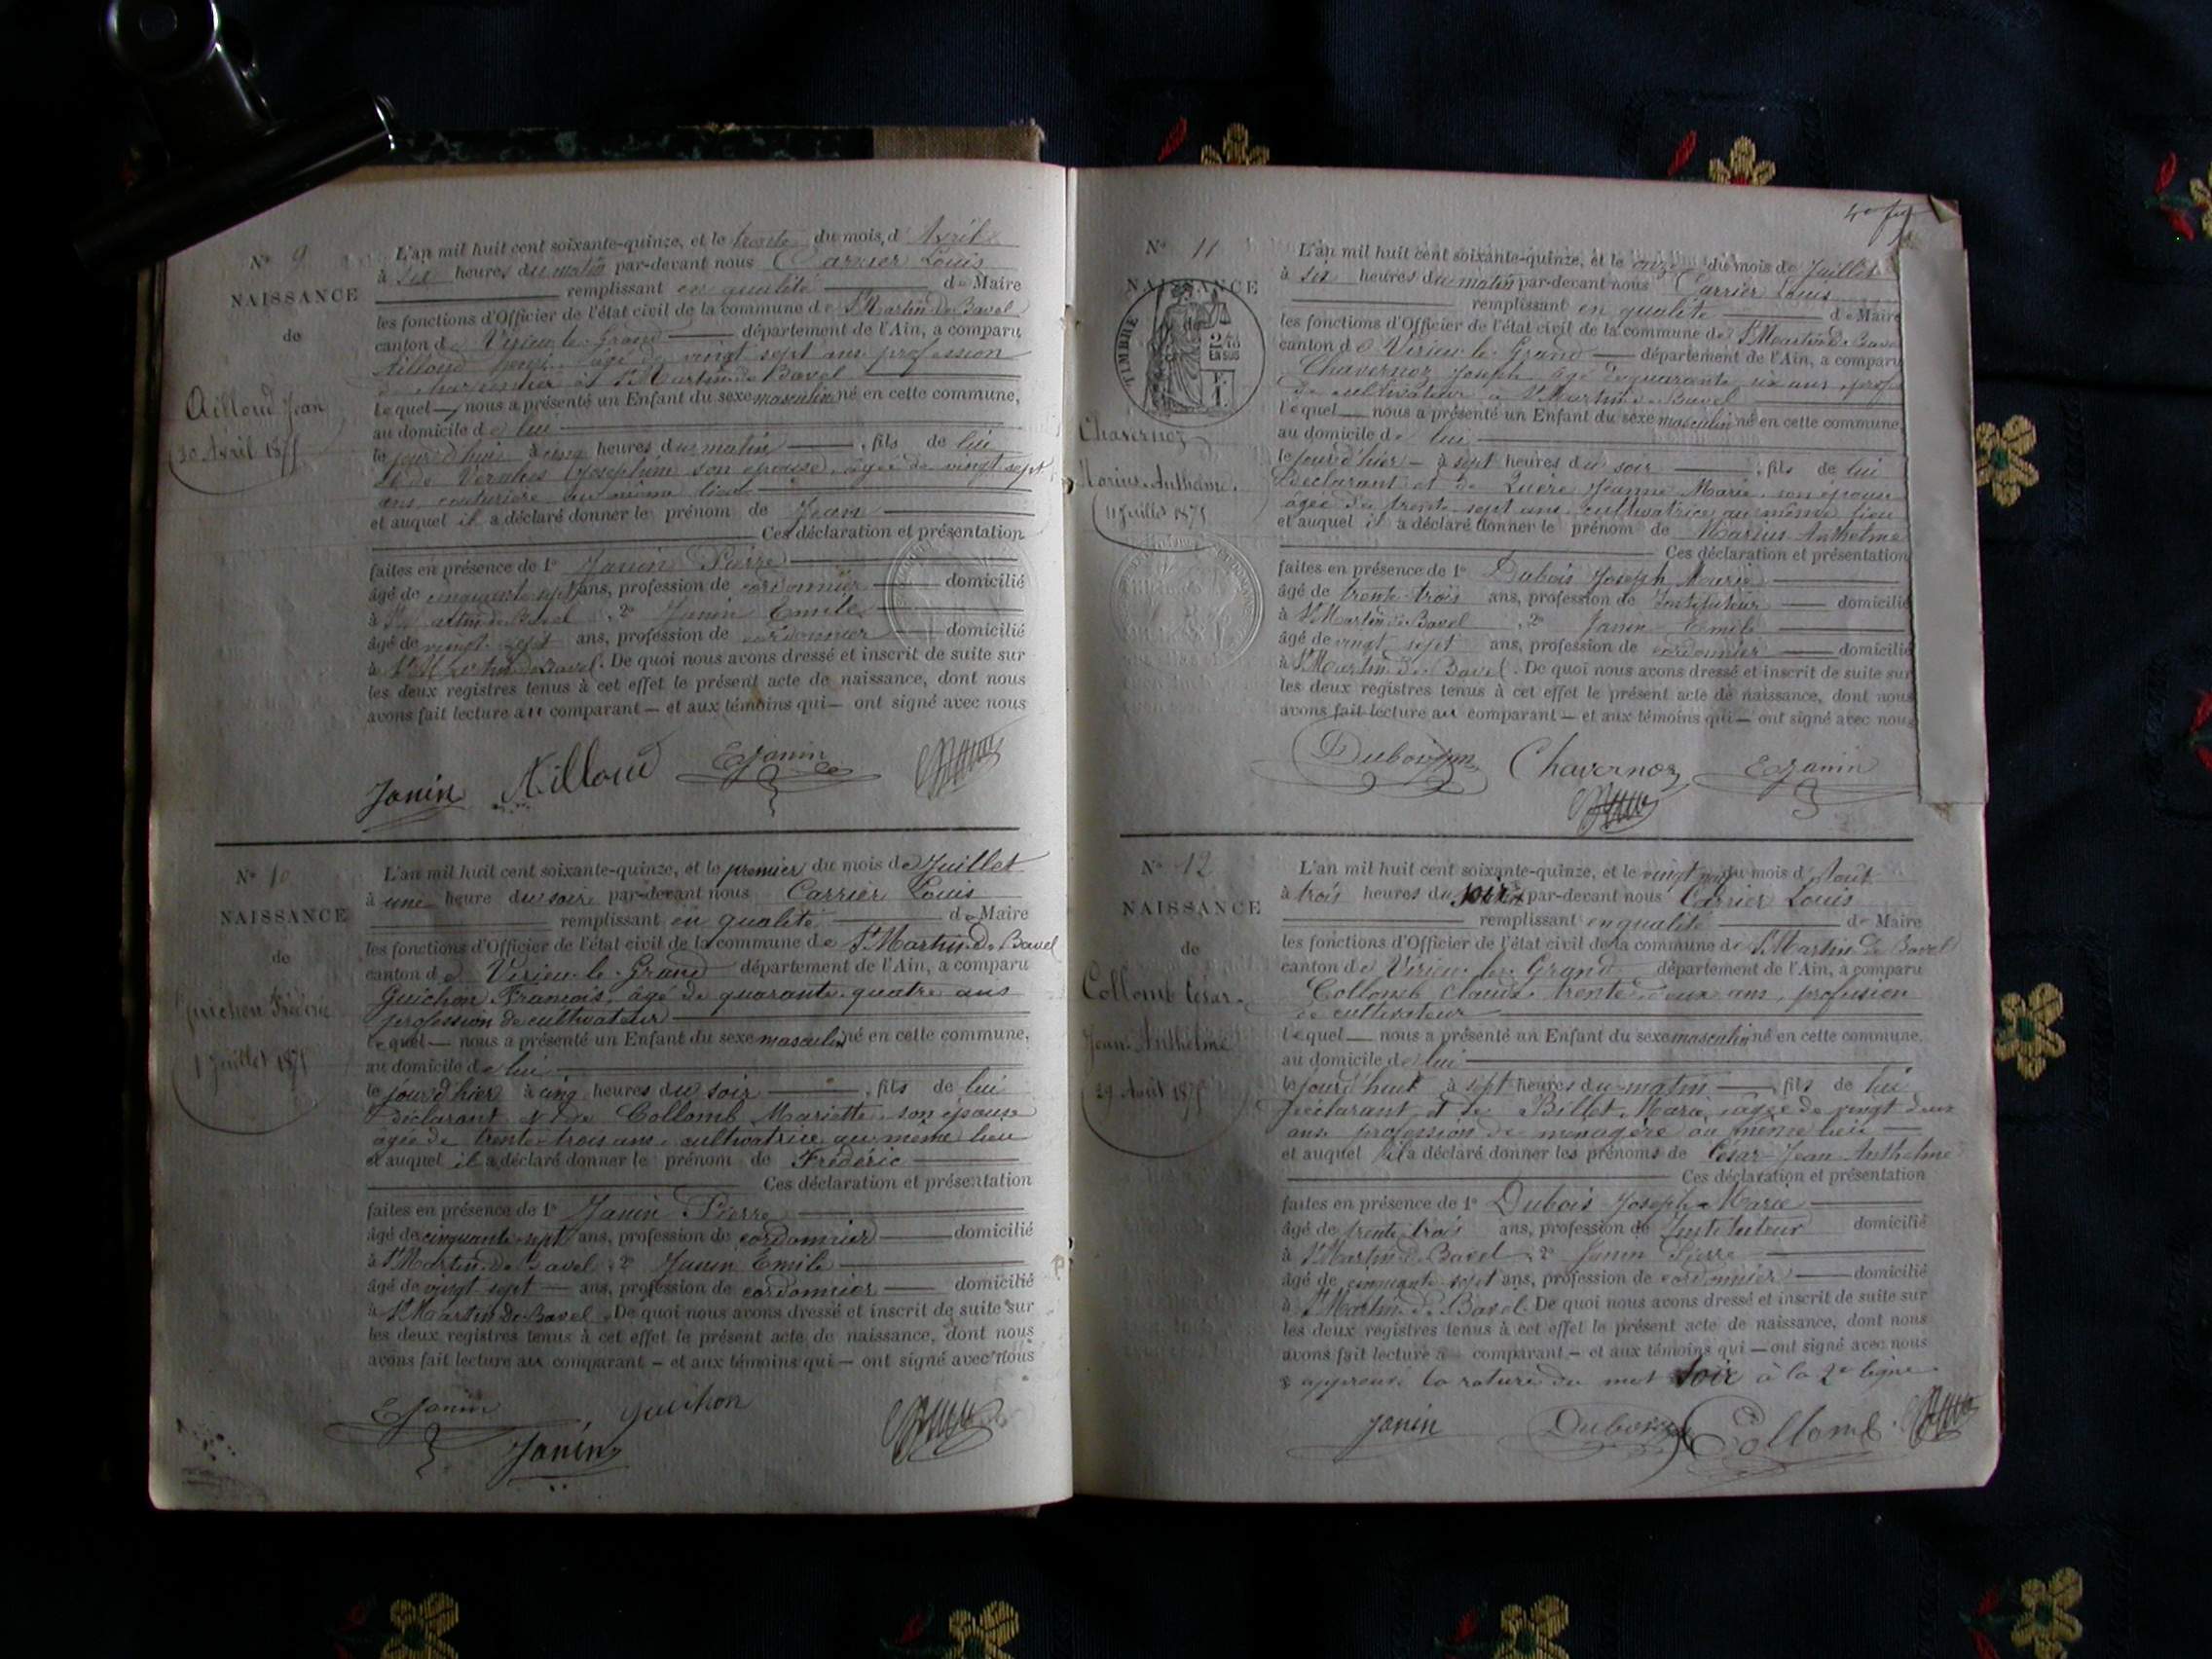 N° 9
NAISSANCE
de
Ailloud Jean
30 Avril 1875
L'an mil huit cent soixante-quinze, et le trente du mois d'Avril
à six heures du matin par-devant nous Carrier Louis
remplissant en qualité de Maire
les fonctions d'Officier de l'état civil de la commune de St Martin de Bavel
canton de Virieu-le-Grand département de l'Ain, a comparu
Ailloud âgé de vingt sept ans profession
de charpentier à St Martin de Bavel
lequel nous a présenté un Enfant du sexe masculin né en cette commune,
au domicile de lui
le jourd'hui à cinq heures du matin, fils de lui
et de Joséphine son épouse, âgée de vingt sept
ans, couturière au même lieu
et auquel il a déclaré donner le prénom de Jean
Ces déclaration et présentation
faites en présence de 1° Janin Pierre
âgé de cinquante-sept ans, profession de cordonnier domicilié
à St Martin de Bavel, 2° Janin Emile
âgé de vingt sept ans, profession de cordonnier domicilié
à St Martin de Bavel. De quoi nous avons dressé et inscrit de suite sur
les deux registres tenus à cet effet le présent acte de naissance, dont nous
avons fait lecture au comparant – et aux témoins qui – ont signé avec nous
Janin Ailloud EJanin
N° 10
NAISSANCE
de
Guichon Frédéric
1 Juillet 1875
L'an mil huit cent soixante-quinze, et le premier du mois de Juillet
à une heure du soir par-devant nous Carrier Louis
remplissant en qualité de Maire
les fonctions d'Officier de l'état civil de la commune de St Martin de Bavel
canton de Virieu-le-Grand département de l'Ain, a comparu
Guichon François, âgé de quarante-quatre ans
profession de cultivateur
lequel nous a présenté un Enfant du sexe masculin né en cette commune,
au domicile de lui
le jour d'hier à cinq heures du soir, fils de lui
déclarant et de Collomb Mariette son épouse
âgée de trente-trois ans, cultivatrice au même lieu
et auquel il a déclaré donner le prénom de Frédéric
Ces déclaration et présentation
faites en présence de 1° Janin Pierre
âgé de cinquante-sept ans, profession de cordonnier domicilié
à St Martin de Bavel, 2° Janin Emile
âgé de vingt sept ans, profession de cordonnier domicilié
à St Martin de Bavel. De quoi nous avons dressé et inscrit de suite sur
les deux registres tenus à cet effet le présent acte de naissance, dont nous
avons fait lecture au comparant – et aux témoins qui – ont signé avec nous
EJanin Guichon
Janin
N° 11
NAISSANCE
TIMBRE
2/10
EN SUS
F.
1.
Chavernoz
Marius-Anthelme.
11 Juillet 1875
L'an mil huit cent soixante-quinze, et le onze du mois de Juillet
à six heures du matin par-devant nous Carrier Louis
remplissant en qualité de Maire
les fonctions d'Officier de l'état civil de la commune de St Martin de Bavel
canton de Virieu-le-Grand département de l'Ain, a comparu
Chavernoz Joseph âgé de quarante six ans prof
de cultivateur à St Martin de Bavel
lequel nous a présenté un Enfant du sexe masculin né en cette commune,
au domicile de lui
le jour d'hier à sept heures du soir, fils de lui
déclarant et de Jeanne Marie, son épouse
âgée de trente sept ans cultivatrice au même lieu
et auquel il a déclaré donner le prénom de Marius Anthelme
Ces déclaration et présentation
faites en présence de 1° Dubois Joseph Marie
âgé de trente-trois ans, profession de Instituteur domicilié
à St Martin de Bavel, 2° Janin Emile
âgé de vingt sept ans, profession de cordonnier domicilié
à St Martin de Bavel. De quoi nous avons dressé et inscrit de suite sur
les deux registres tenus à cet effet le présent acte de naissance, dont nous
avons fait lecture au comparant – et aux témoins qui – ont signé avec nous
Dubois Chavernoz EJanin
N° 12
NAISSANCE
de
Collomb César-
Jean-Anthelme
29 Août 1875
L'an mil huit cent soixante-quinze, et le vingt neuf du mois d'Août
à trois heures du soir par-devant nous Carrier Louis
remplissant en qualité de Maire
les fonctions d'Officier de l'état civil de la commune de St Martin de Bavel
canton de Virieu-le-Grand département de l'Ain, a comparu
Collomb Claude trente deux ans, profession
de cultivateur
lequel nous a présenté un Enfant du sexe masculin né en cette commune,
au domicile de lui
le jourd'hui à sept heures du matin, fils de lui
déclarant et de Billet Marie, âgée de vingt deux
ans profession de ménagère au même lieu
et auquel il a déclaré donner les prénoms de César-Jean Anthelme
Ces déclaration et présentation
faites en présence de 1° Dubois Joseph Marie
âgé de trente trois ans, profession de Instituteur domicilié
à St Martin de Bavel, 2° Janin Pierre
âgé de cinquante-sept ans, profession de cordonnier domicilié
à St Martin de Bavel. De quoi nous avons dressé et inscrit de suite sur
les deux registres tenus à cet effet le présent acte de naissance, dont nous
avons fait lecture a comparant – et aux témoins qui – ont signé avec nous
approuvé la rature du mot soir à la 2e ligne
Janin Dubois Collomb